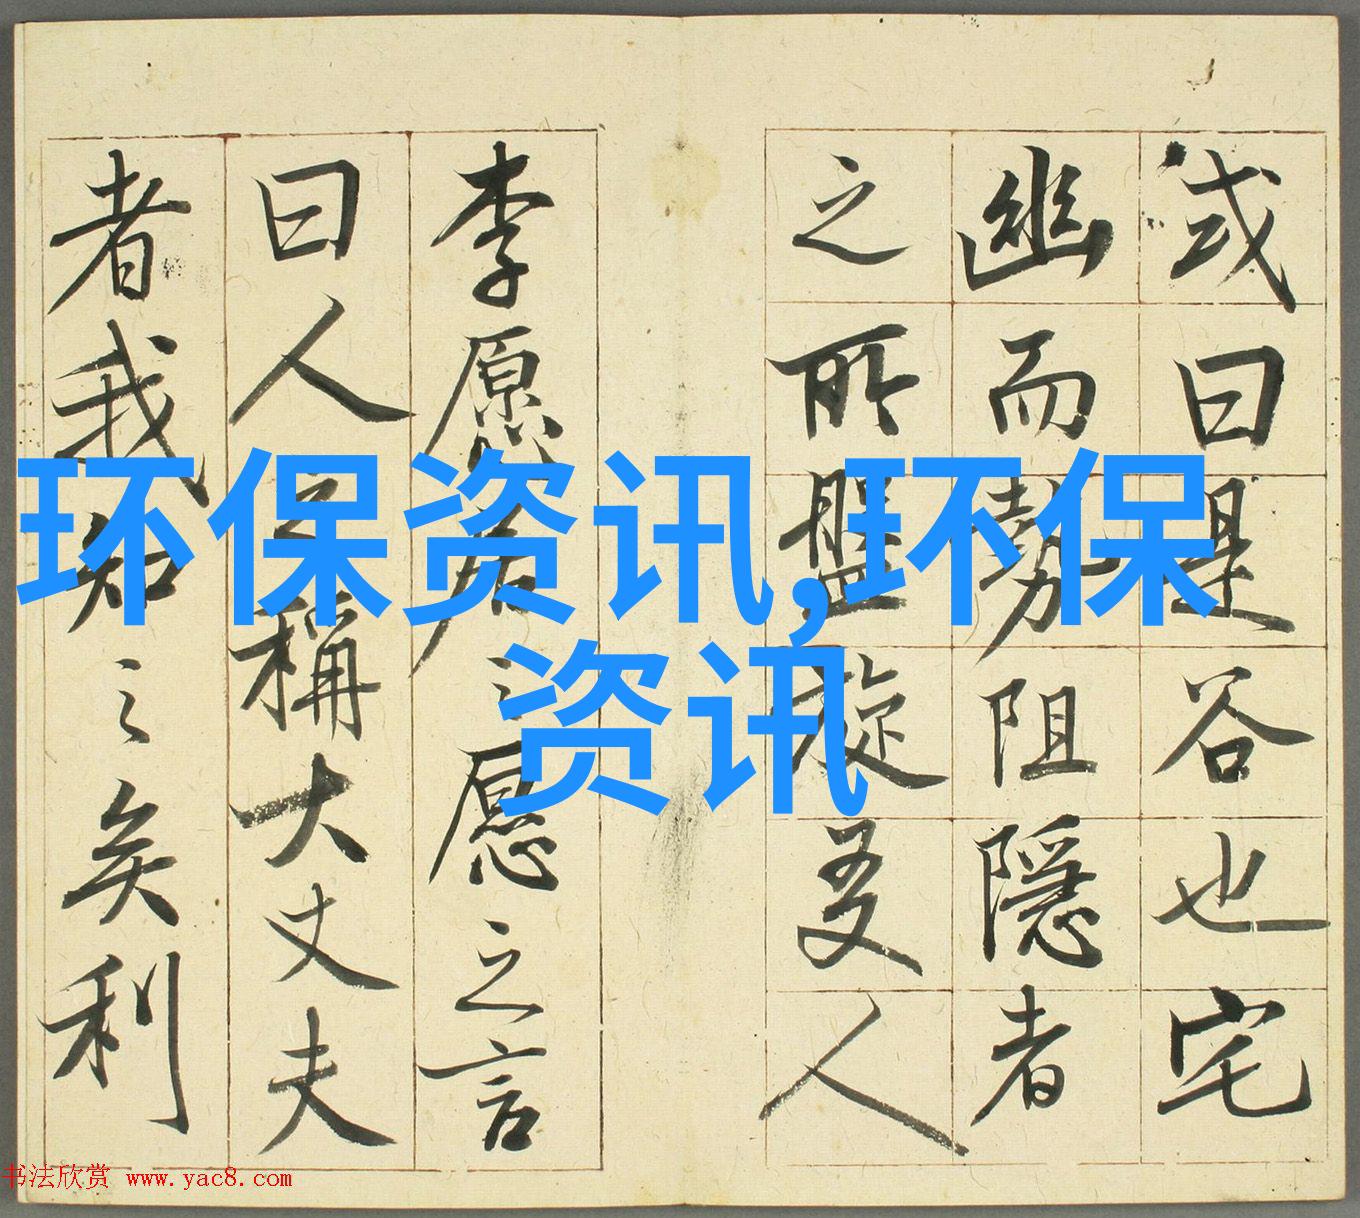 或曰是谷也宅
幽而勢阻隱者
之所盤旋友人
李愿居之愿之言
曰人之稱大丈夫
者我知之矣利
环保资讯,环保
资讯
书法欣赏 www.yac8.com